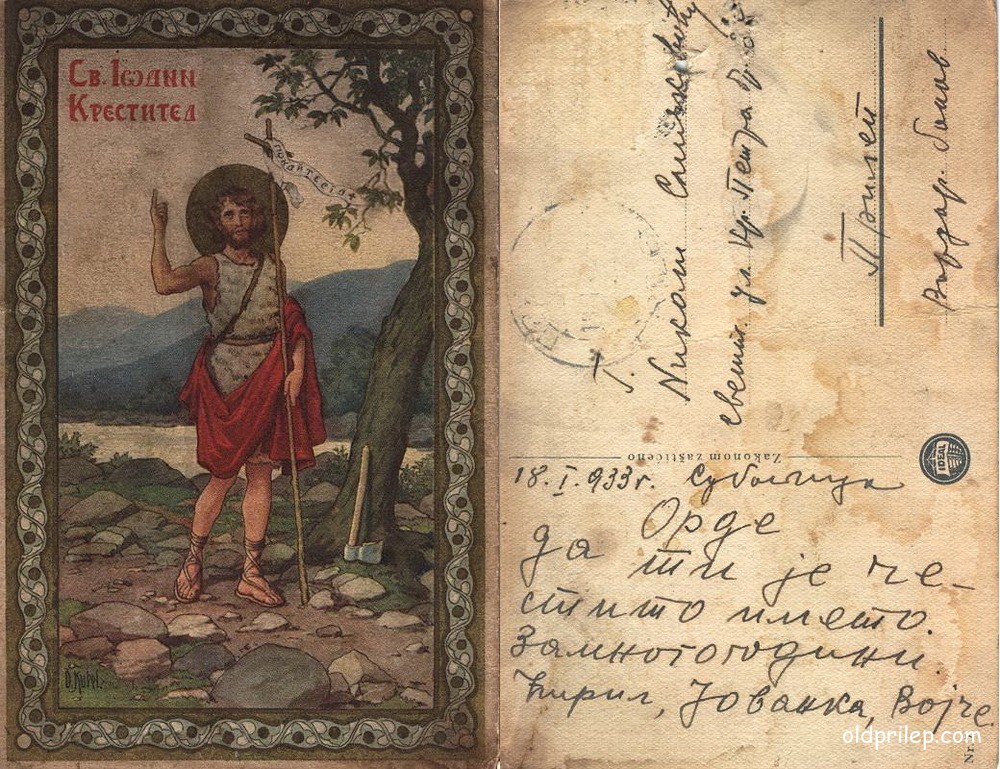 Св. Іѡанн
Крестител
ПОКАЙТЕСЯ
18. I. 933г. Суботица
Орде
да ти је че-
стито името.
Замногогодини.
Ћирил, Јованка, Војче.
Zakonom zaštićeno
IDEAL
Г.
Никола
свешт. ул. Кр. Петра Бр.
Прилеп
Вардар. банов.
Nr.
oldprilep.com